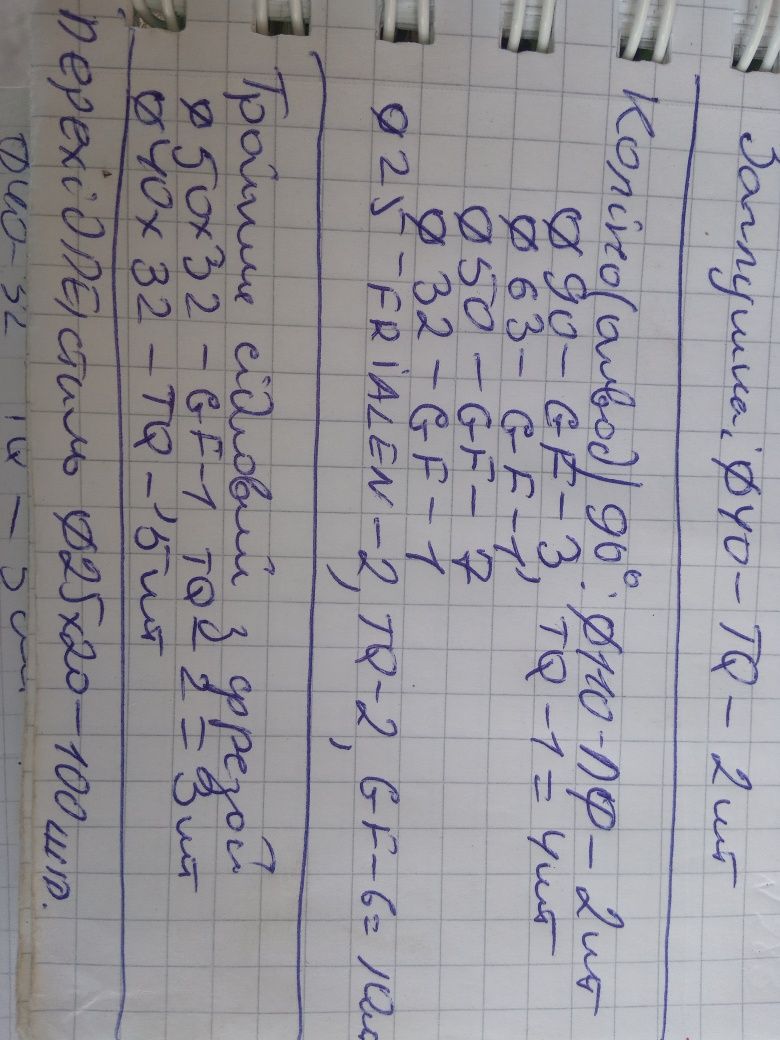 Заглушка: Ø40 – TQ – 2 шт
Коліно (отвод) 90°: Ø110 – ПФ – 2 шт
Ø 90 – GF – 3 TQ – 1 = 4 шт
Ø 63 – GF – 1,
Ø 50 – GF – 7
Ø 32 – GF – 1
Ø 25 – FRIALEN – 2, TQ – 2, GF – 6 = 10
Тройник сідловий з фрезой
Ø 50х32 – GF – 1 TQ – 2 = 3 шт
Ø 40х32 – TQ – 5 шт
Перехід ПЕ/сталь Ø25х20 – 100 шт.
Ø40-32 TQ – 5